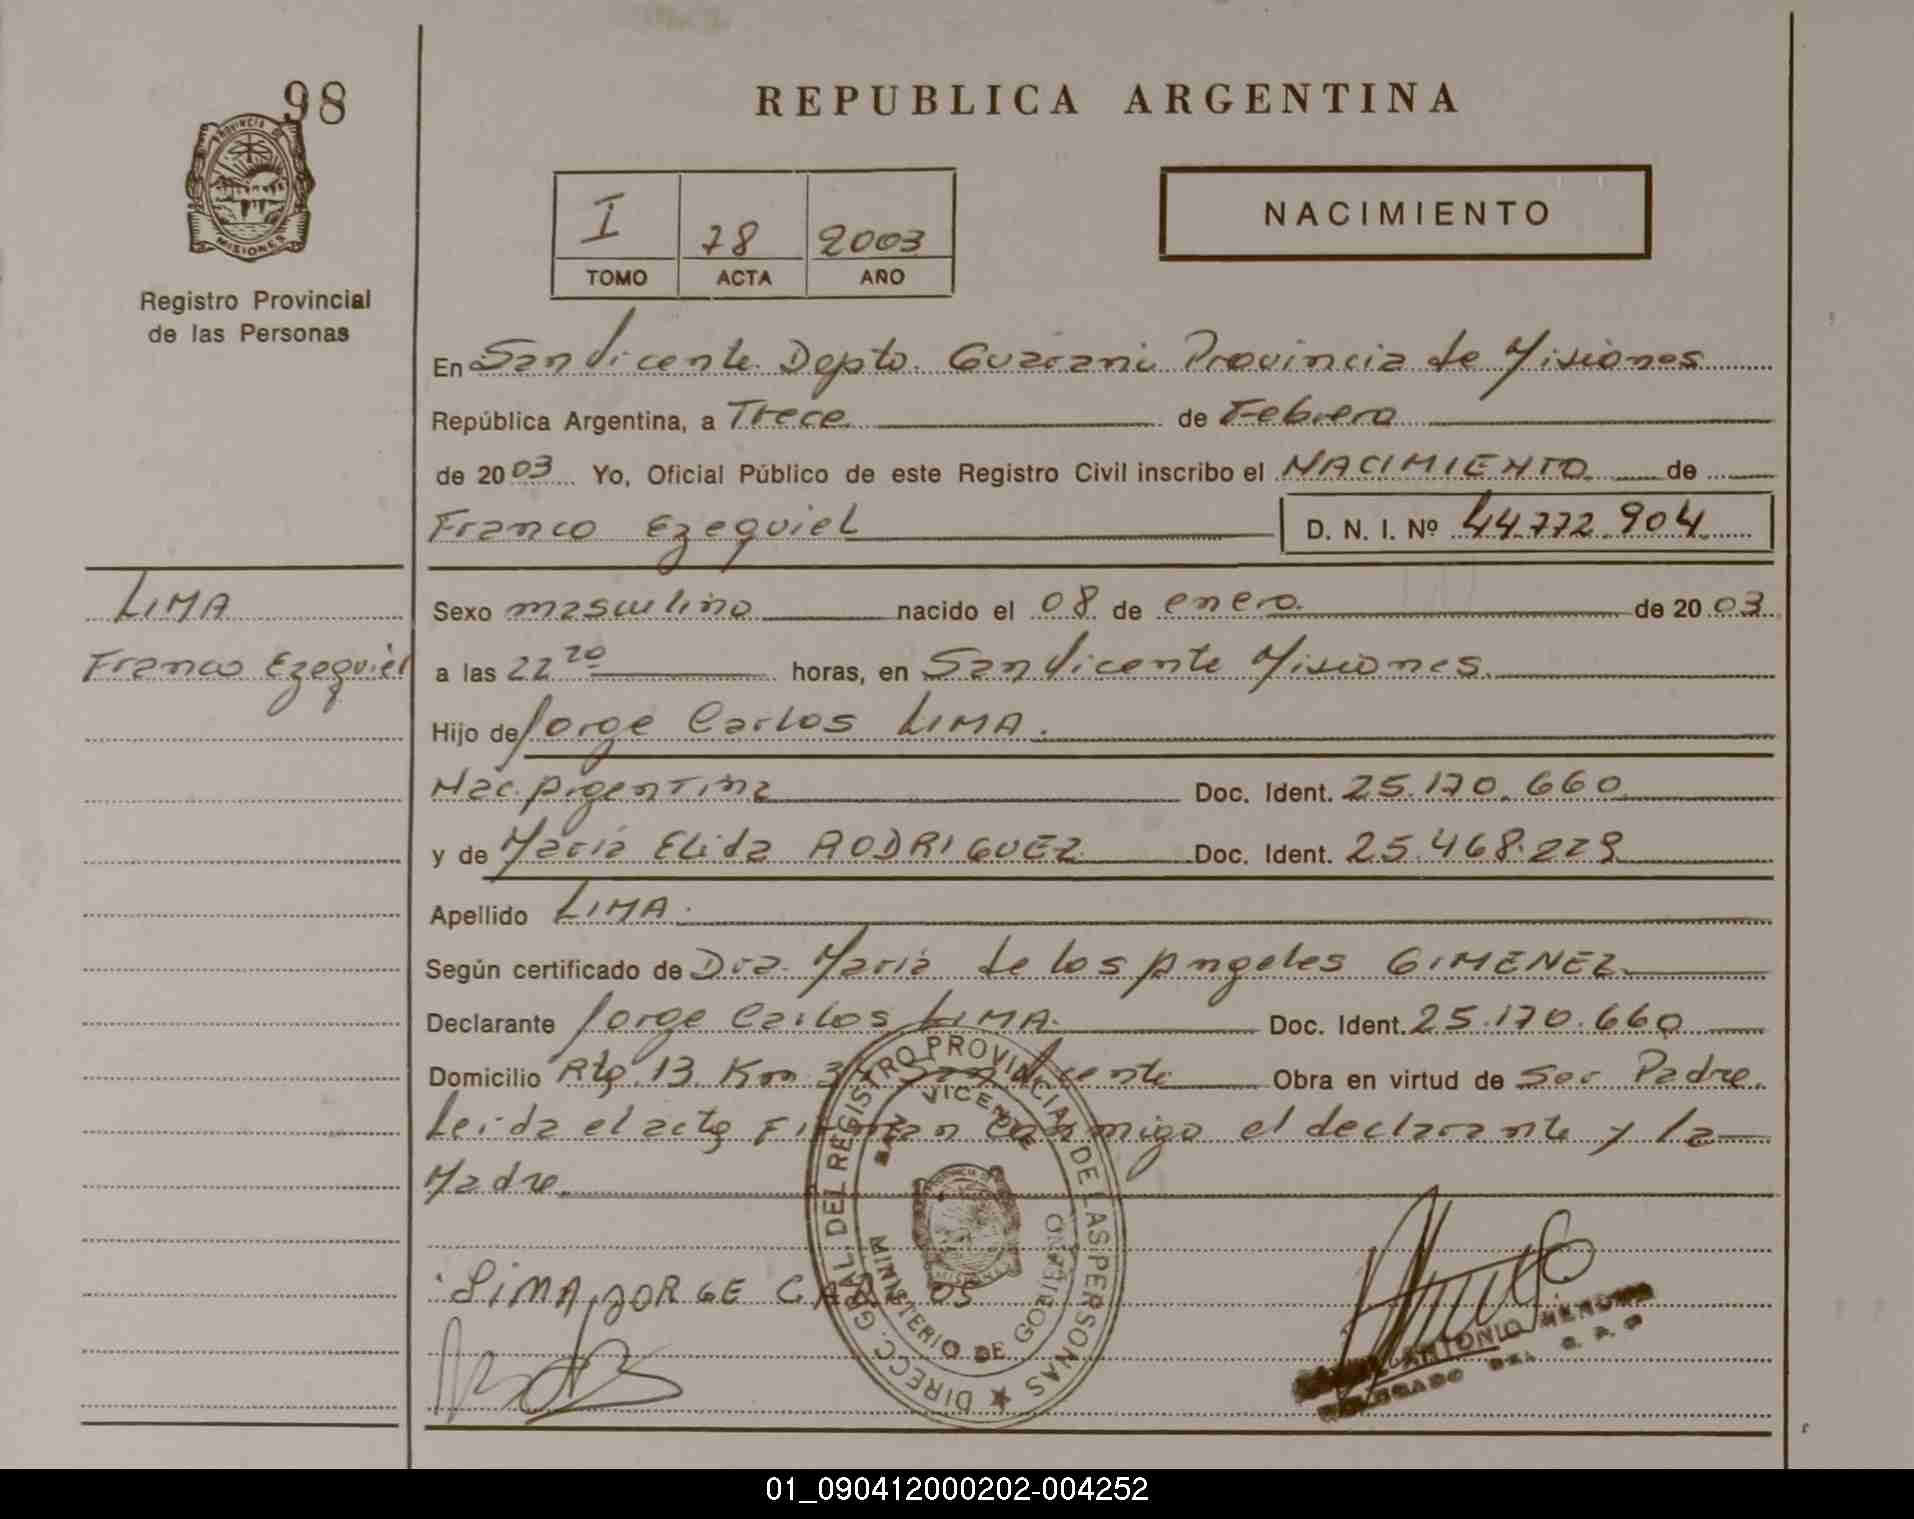 98
PROVINCIA DE
MISIONES
Registro Provincial
de las Personas
LIMA
Franco Ezequiel
REPUBLICA ARGENTINA
I 78 2003
TOMO ACTA AÑO
NACIMIENTO
En San Vicente Depto. Guarani Provincia de Misiones
República Argentina, a Trece de Febrero
de 2003 Yo, Oficial Público de este Registro Civil inscribo el NACIMIENTO de
Franco Ezequiel D. N. I. Nº 44.772.904
Sexo masculino nacido el 08 de enero de 2003
a las 22 20 horas, en San Vicente Misiones.
Hijo de Jorge Carlos LIMA.
Nac. Argentina Doc. Ident. 25.170.660
y de Maria Elida RODRIGUEZ Doc. Ident. 25.468.229
Apellido LIMA.
Según certificado de Dra. Maria de los Angeles GIMENEZ
Declarante Jorge Carlos LIMA. Doc. Ident. 25.170.660
Domicilio Rta. 13 Km San Vicente Obra en virtud de Ser Padre.
Leida el acta Firman conmigo el declarante y la
Madre.
DIRECC. GRAL. DEL REGISTRO PROVINCIAL DE LAS PERSONAS
SAN VICENTE
MINISTERIO DE GOBIERNO
LIMA, JORGE CARLOS
ANTONIO
DELEGADO DEL R. P. P
01_090412000202-004252